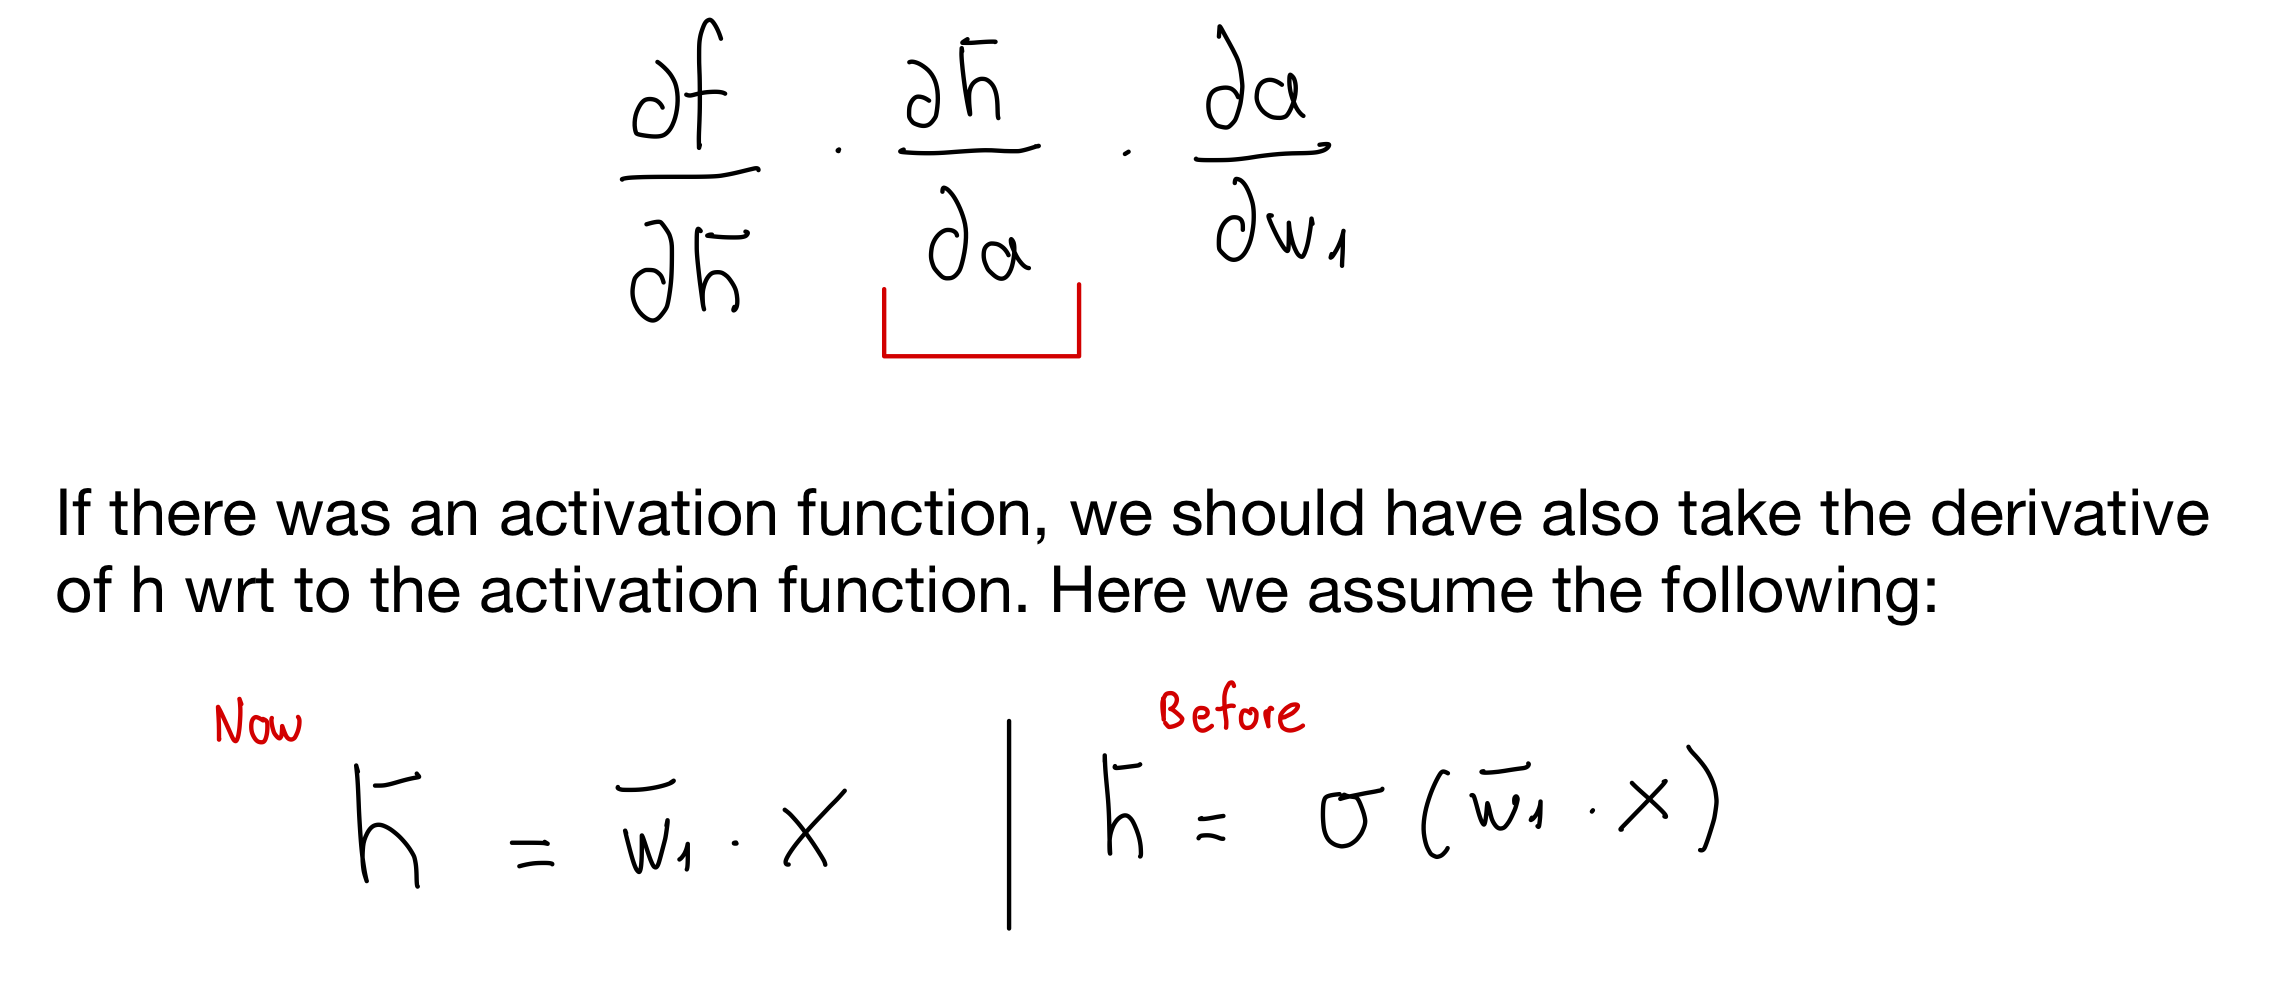 ∂f/∂h̄ · ∂h̄/∂a · ∂a/∂w₁
If there was an activation function, we should have also take the derivative
of h wrt to the activation function. Here we assume the following:
Now Before
h̄ = w̄₁ · x | h̄ = σ(w̄₁ · x)